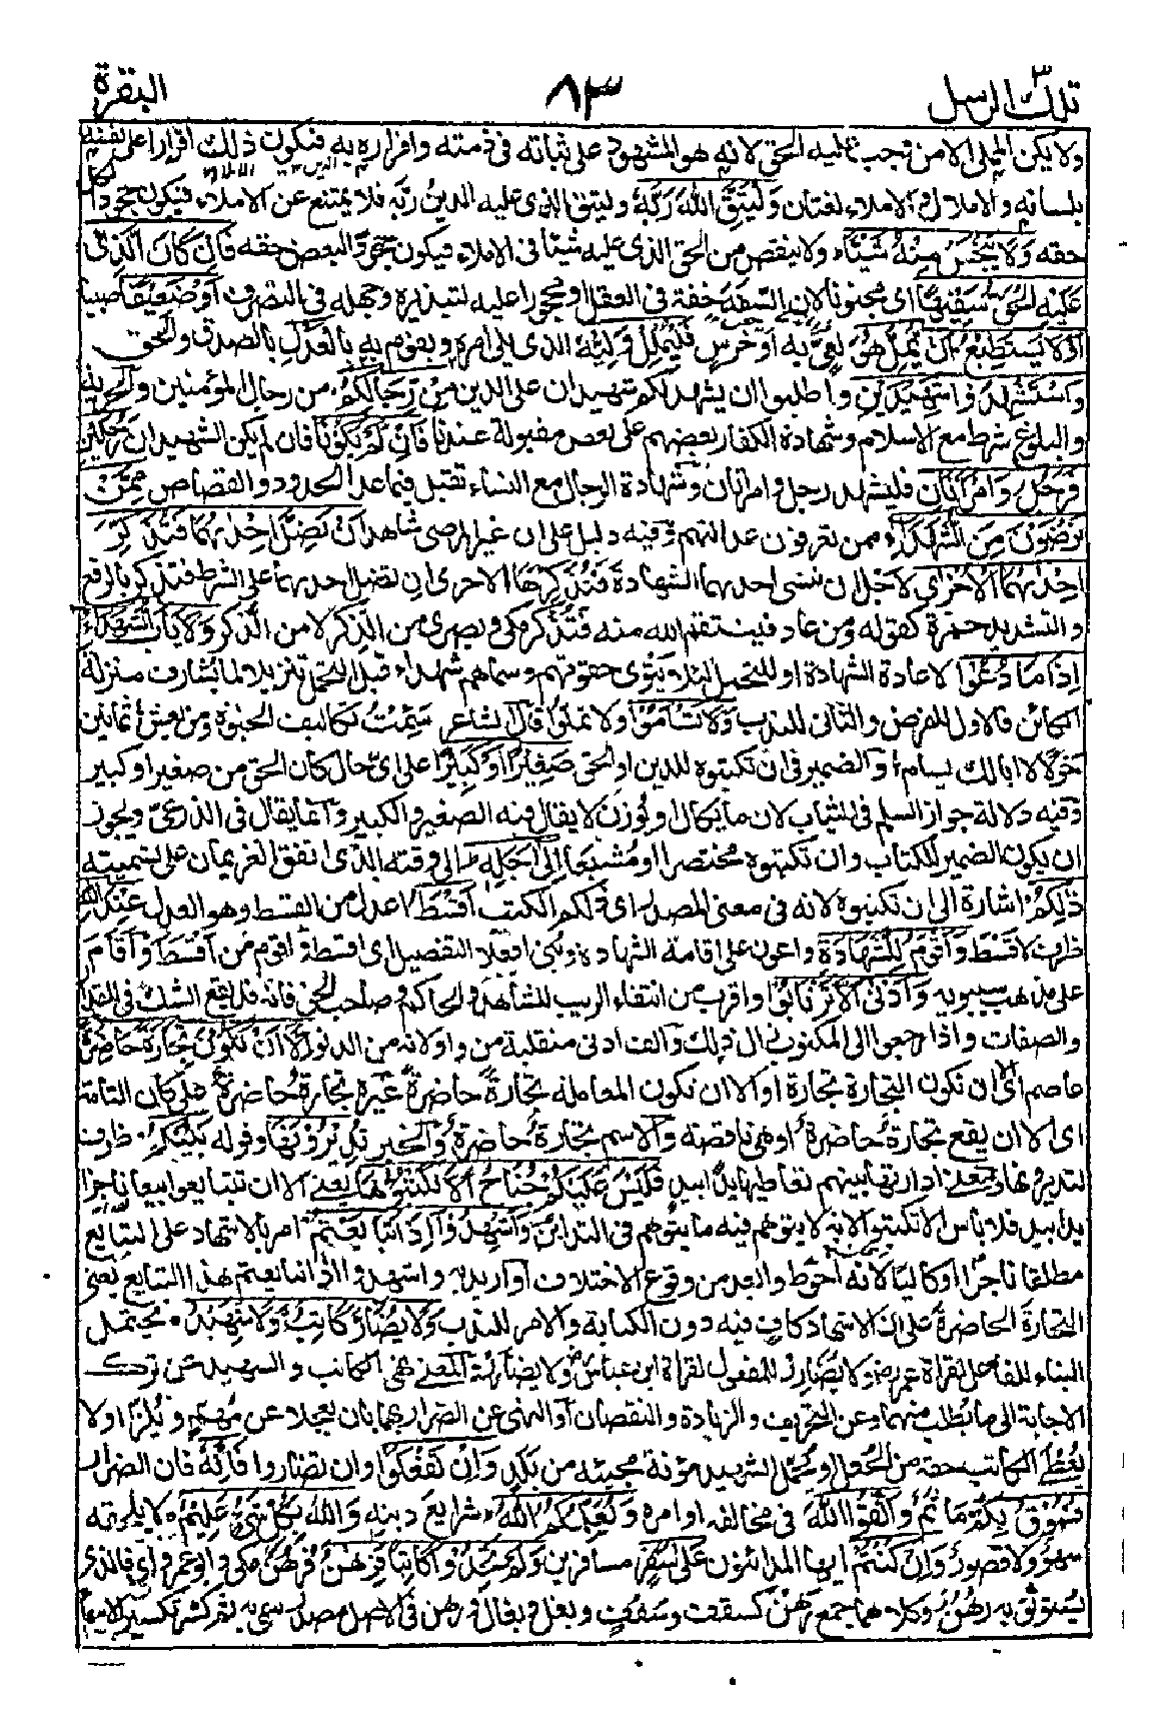 تلك الرسل ٣
٨٣
البقرة
ولا يكن المملى الا من وجب عليه الحق لانه هو المشهود على ثباته فى ذمته واقراره به فيكون ذلك اقرارا على نفسه
بلسانه والاملال والاملاء لغتان وَلْيَتَّقِ اللّٰهَ رَبَّهٗ وليتق الذى عليه الدين ربّه فلا يمتنع عن الاملاء فيكون جحودا لكل
حقه وَلَا يَبْخَسْ مِنْهُ شَيْئًا ولا ينقص من الحق الذى عليه شيئا فى الاملاء فيكون جحودا لبعض حقه فَاِنْ كَانَ الَّذِىْ
عَلَيْهِ الْحَقُّ سَفِيْهًا اى مجنونا لان السفه خفة فى العقل او محجورا عليه لتبذيره وجهله فى التصرف اَوْ ضَعِيْفًا صبيا
اَوْ لَا يَسْتَطِيْعُ اَنْ يُّمِلَّ هُوَ لعىّ به او خرس فَلْيُمْلِلْ وَلِيُّهٗ الذى يلى امره ويقوم به بِالْعَدْلِ بالصدق والحق
وَاسْتَشْهِدُوْا شَهِيْدَيْنِ واطلبوا ان يشهد لكم شهيدان على الدين مِنْ رِّجَالِكُمْ من رجال المؤمنين والحرية
والبلوغ شرط مع الاسلام وشهادة الكفار بعضهم على بعض مقبولة عندنا فَاِنْ لَّمْ يَكُوْنَا فان لم يكن الشهيدان رَجُلَيْنِ
فَرَجُلٌ وَّامْرَاَتَانِ فليشهد رجل وامراتان وشهادة الرجال مع النساء تقبل فيما عدا الحدود والقصاص مِمَّنْ
تَرْضَوْنَ مِنَ الشُّهَدَاءِ ممن تعرفون عدالتهم وفيه دليل على ان غير المرضى شاهد اَنْ تَضِلَّ اِحْدٰىهُمَا فَتُذَكِّرَ
اِحْدٰىهُمَا الْاُخْرٰى لاجل ان تنسى احدٰهما الشهادة فَتُذَكِّرَهَا الاخرى ان تضل احدٰهما على الشرط فتذكر بالرفع
والتشديد حمزة كقوله ومن عاد فينتقم الله منه فَتُذْكِرَ مكى وبصرى من الذِكر لا من الذُكر وَلَا يَاْبَ الشُّهَدَاءُ
اِذَا مَا دُعُوْا لاعادة الشهادة او للتحمل لئلا يتوى حقوقهم وسماهم شهداء قبل التحمل تنزيلا لما يشارف منزلة
الكائن فالاول للفرض والثانى للندب وَلَا تَسْاَمُوْا ولا تملوا قال الشاعر سئمتُ تكاليف الحيٰوة ومن يعش ثمانين
حولًا لا ابالك يسام والضمير فى ان تكتبوه للدين او الحق صَغِيْرًا اَوْ كَبِيْرًا على اى حال كان الحق من صغير او كبير
وفيه دلالة جواز السلم فى الثياب لان ما يكال او يوزن لا يقال فيه الصغير والكبير وانما يقال فى الذرعى ويجوز
ان يكون الضمير للكتاب وان تكتبوه مختصرا او مشبعا اِلٰى اَجَلِهٖ الى وقته الذى اتفق الغريمان على تسميته
ذٰلِكُمْ اشارة الى ان تكتبوه لانه فى معنى المصدر اى ذلكم الكتب اَقْسَطُ اعدل من القسط وهو العدل عِنْدَ اللّٰهِ
ظرف لاقسط وَاَقْوَمُ لِلشَّهَادَةِ واعون على اقامة الشهادة وبنى افعلا التفضيل اى اقسط واقوم من اقسط واقام
على مذهب سيبويه وَاَدْنٰى اَلَّا تَرْتَابُوْا واقرب من انتفاء الريب للشاهد والحاكم وصاحب الحق فانه قد يقع الشك فى المقدار
والصفات واذا رجعوا الى المكتوب زال ذلك والف ادنى منقلبة من واو لانه من الدنو اِلَّا اَنْ تَكُوْنَ تِجَارَةً حَاضِرَةً
عاصم اى الا ان تكون التجارة تجارة او الا ان تكون المعاملة تجارة حاضرة غيره تجارةٌ حاضرةٌ على كان التامة
اى الا ان يقع تجارة حاضرة او هى ناقصة والاسم تجارة حاضرة والخبر تُدِيْرُوْنَهَا وقوله بَيْنَكُمْ ظرف
لتديرونها ومعنى ادارتها بينهم تعاطيها يدا بيد فَلَيْسَ عَلَيْكُمْ جُنَاحٌ اَلَّا تَكْتُبُوْهَا يعنى الا ان تتبايعوا بيعا ناجزا
يدا بيد فلا باس الا تكتبوا لانه لا يتوهم فيه ما يتوهم فى التداين وَاَشْهِدُوْا اِذَا تَبَايَعْتُمْ امر بالاشهاد على التبايع
مطلقا ناجزا او كالئا لانه احوط وابعد من وقوع الاختلاف او اريد به واشهدوا اذا تبايعتم هذا التبايع يعنى
التجارة الحاضرة على ان الاشهاد كاف فيه دون الكتابة والامر للندب وَلَا يُضَارَّ كَاتِبٌ وَّلَا شَهِيْدٌ يحتمل
البناء للفاعل لقراءة عمر رض ولا يضارِر وللمفعول لقراءة ابن عباس رض ولا يضارَر والمعنى نهى الكاتب والشهيد عن ترك
الاجابة الى ما يطلب منهما وعن التحريف والزيادة والنقصان او النهى عن الضرار بهما بان يعجلا عن مهم ويلزا او لا
يعطى الكاتب حقه من الجعل او يحمل الشهيد مؤنة مجيئه من بلد وَاِنْ تَفْعَلُوْا وان تضاروا فَاِنَّهٗ فان الضرار
فُسُوْقٌ بِكُمْ ماثم وَاتَّقُوا اللّٰهَ فى مخالفة اوامره وَيُعَلِّمُكُمُ اللّٰهُ شرايع دينه وَاللّٰهُ بِكُلِّ شَىْءٍ عَلِيْمٌ لا يلحقه
سهو ولا قصور وَاِنْ كُنْتُمْ ايها المتداينون عَلٰى سَفَرٍ مسافرين وَّلَمْ تَجِدُوْا كَاتِبًا فَرِهٰنٌ فَرُهُنٌ مكى وابو عمرو اى فالذى
يستوثق به رهن وكلاهما جمع رهن كسقف وسقف وبغل وبغال ورهن فى الاصل مصدر سمى به ثم كسر تكسير الاسماء